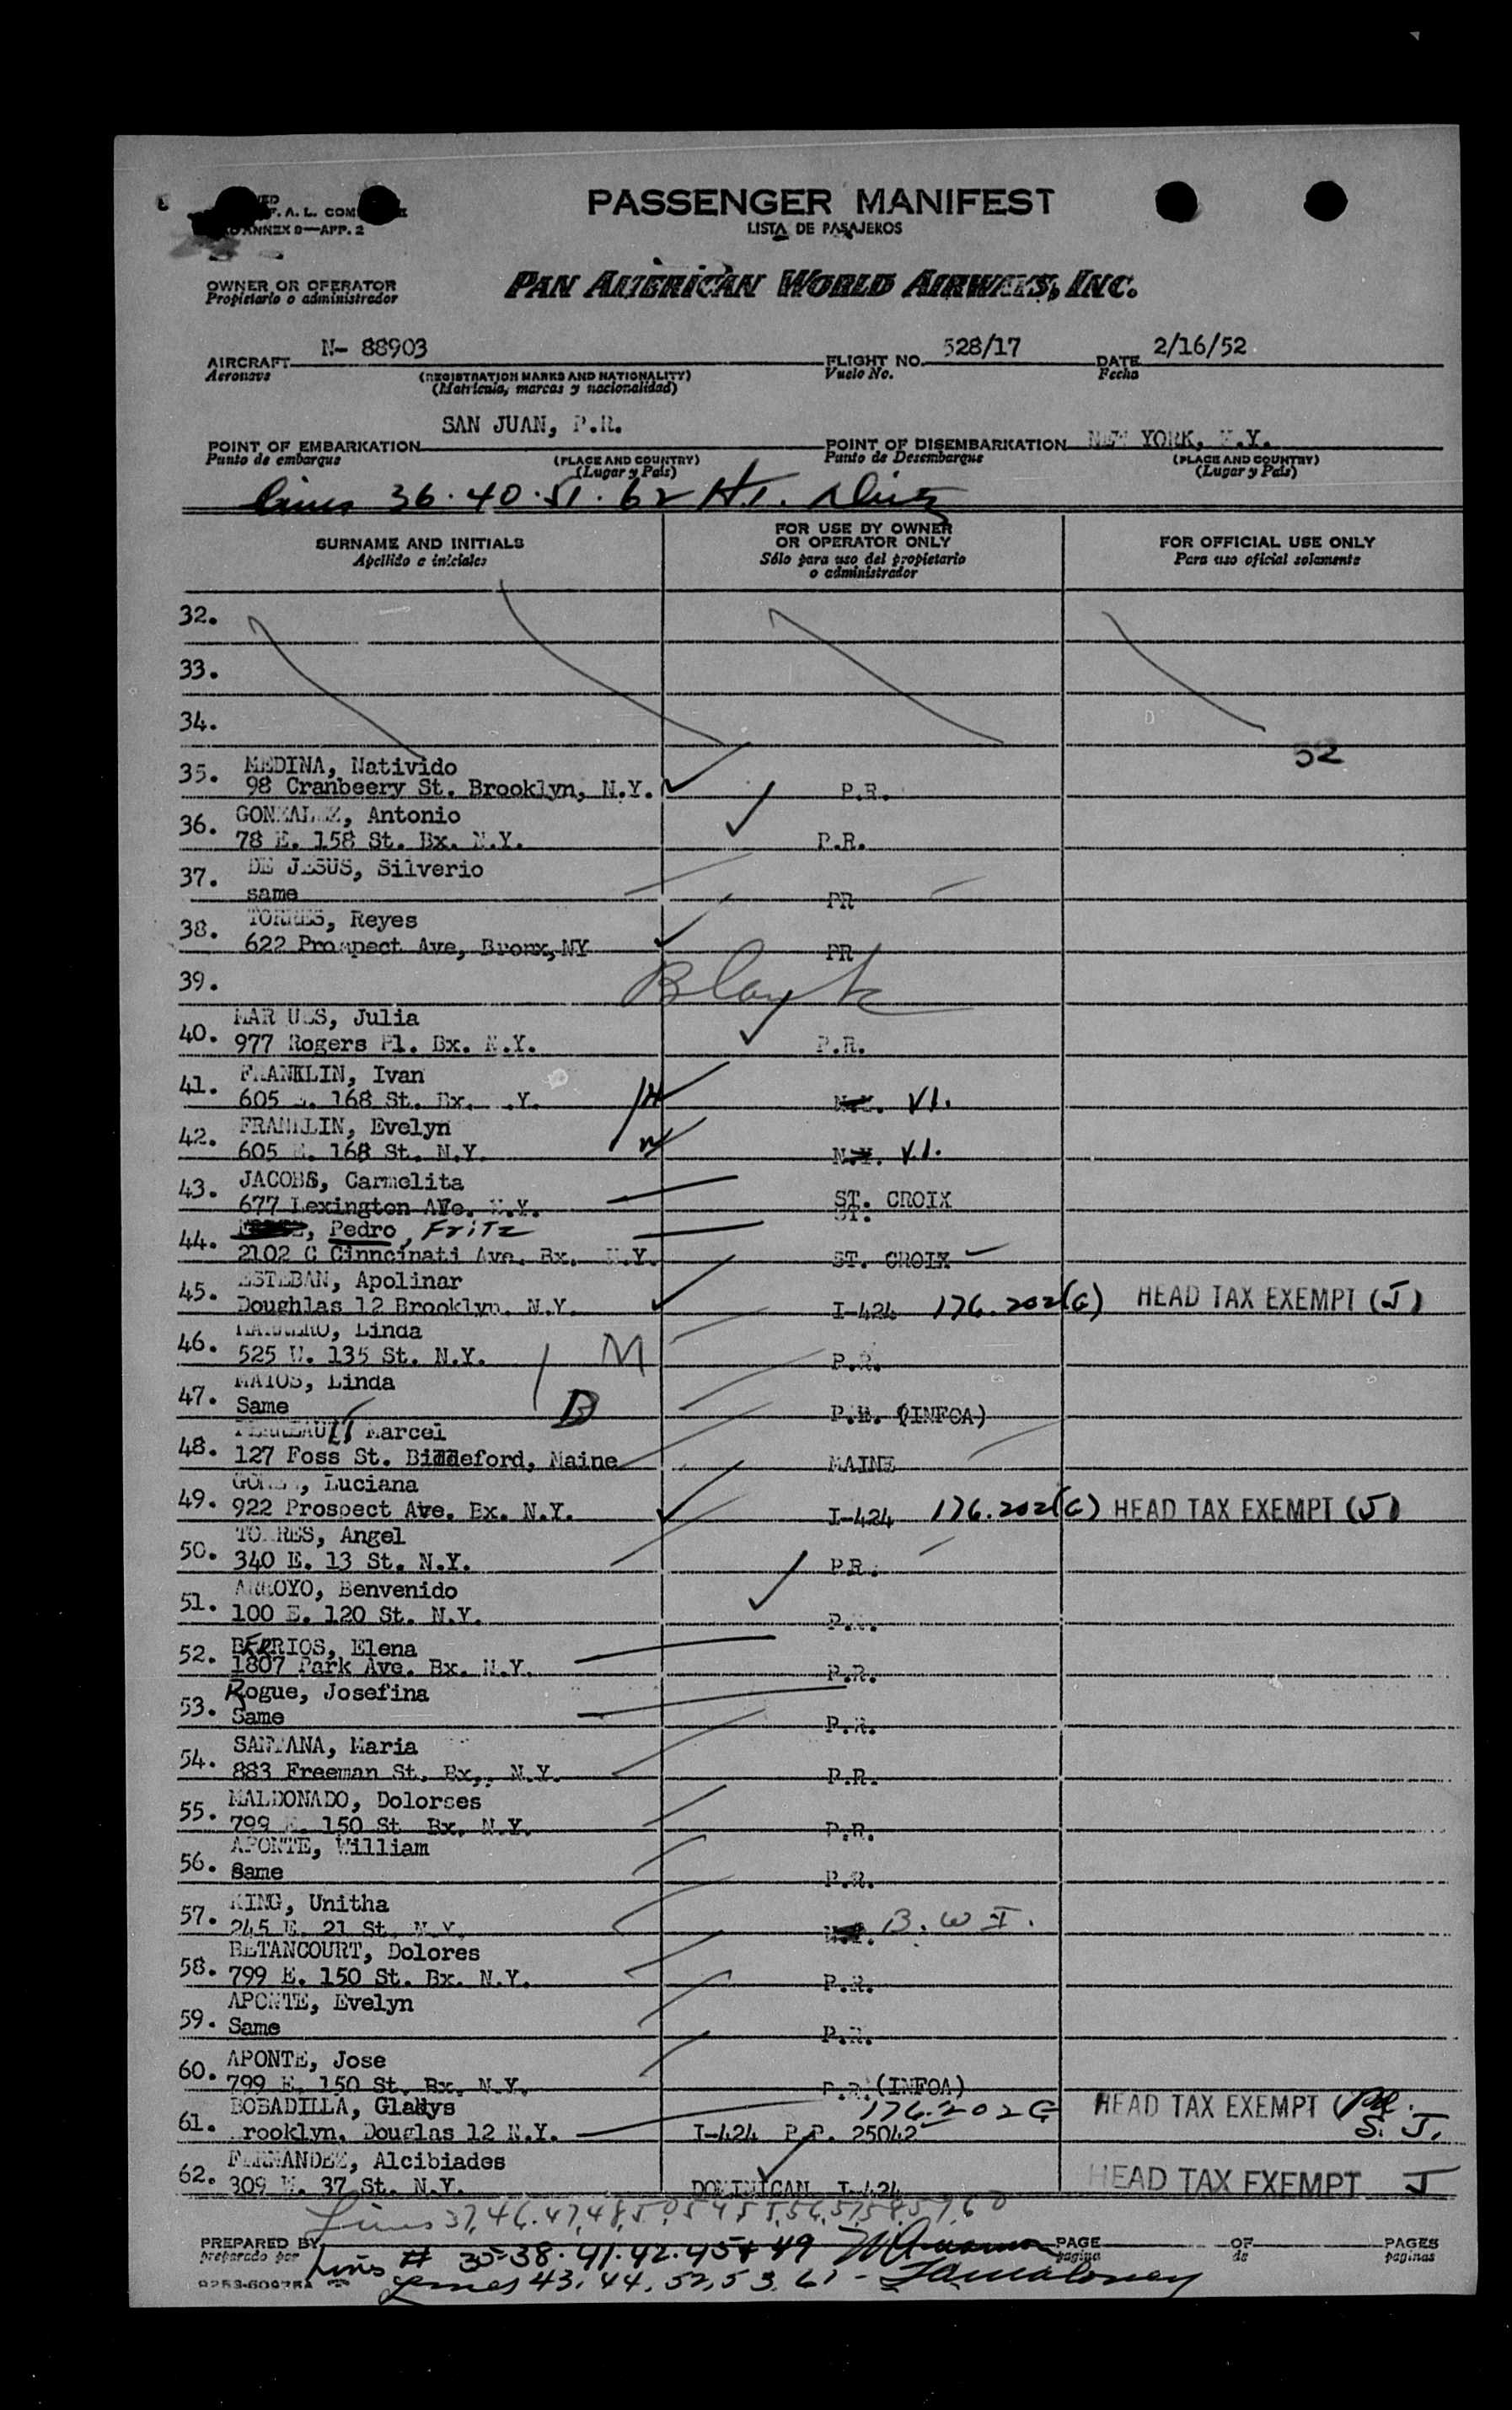 ANNEX 9—APP. 2
PASSENGER MANIFEST
LISTA DE PASAJEROS
OWNER OR OPERATOR
Propietario o administrador
PAN AMERICAN WORLD AIRWAYS, INC.
AIRCRAFT N- 88903 FLIGHT NO. 528/17 DATE 2/16/52
Aeronave (REGISTRATION MARKS AND NATIONALITY) Vuelo No. Fecha
(Matricula, marcas y nacionalidad)
SAN JUAN, P.R. NEW YORK, N.Y.
POINT OF EMBARKATION POINT OF DISEMBARKATION
Punto de embarque (PLACE AND COUNTRY) Punto de Desembarque (PLACE AND COUNTRY)
(Lugar y País) (Lugar y País)
36. 40. 51. 62
SURNAME AND INITIALS FOR USE BY OWNER OR OPERATOR ONLY FOR OFFICIAL USE ONLY
Apellido e iniciales Sólo para uso del propietario o administrador Para uso oficial solamente
32.
33.
34.
52
35. MEDINA, Nativido
98 Cranbeery St. Brooklyn, N.Y. P.R.
36. GONZALEZ, Antonio
78 E. 158 St. Bx. N.Y. P.R.
37. DE JESUS, Silverio
same PR
38. TORRES, Reyes
622 Prospect Ave, Bronx, NY PR
39. Blank
40. Julia
977 Rogers Pl. Bx. N.Y. P.R.
41. FRANKLIN, Ivan
605 168 St. Bx. .Y. V.I.
42. FRANKLIN, Evelyn
605 E. 168 St. N.Y. N.Y. V.I.
43. JACOBS, Carmelita
677 Lexington AVe. N.Y. ST. CROIX
ST.
44. Pedro, Fritz
2102 C Cinncinati Ave. Bx. N.Y. ST. CROIX
45. ESTEBAN, Apolinar
Doughlas 12 Brooklyn. N.Y. I-424 176.202(G) HEAD TAX EXEMPT (J)
46. Linda
525 W. 135 St. N.Y. M P.R.
47. MATOS, Linda
Same D P.R. (INFOA)
48. Marcel
127 Foss St. Biddeford, Maine MAINE
49. Luciana
922 Prospect Ave. Bx. N.Y. I-424 176.202(G) HEAD TAX EXEMPT (J)
50. TORRES, Angel
340 E. 13 St. N.Y. P.R.
51. ARROYO, Benvenido
100 E. 120 St. N.Y. P.R.
52. BERRIOS, Elena
1807 Park Ave. Bx. N.Y. P.R.
53. Rogue, Josefina
Same P.R.
54. SANTANA, Maria
883 Freeman St. Bx,. N.Y. P.R.
55. MALDONADO, Dolorses
799 E. 150 St Bx. N.Y. P.R.
56. APONTE, William
Same P.R.
57. KING, Unitha
245 E. 21 St. N.Y. B.W I.
58. BETANCOURT, Dolores
799 E. 150 St. Bx. N.Y. P.R.
59. APONTE, Evelyn
Same P.R.
60. APONTE, Jose
799 E. 150 St. Bx. N.Y. P.R. (INFOA)
61. BOBADILLA, Gladys 176.202G HEAD TAX EXEMPT
rooklyn. Douglas 12 N.Y. I-424 P.P. 25042 S. J.
62. FERNANDEZ, Alcibiades
309 37 St. N.Y. DOMINICAN I-424 HEAD TAX EXEMPT J
Lines 37,46.47,48,50,54,55,56,57,58,59,60
PREPARED BY PAGE OF PAGES
preparado por pagina de paginas
Lines # 35-38.41.42.45+49
Lines 43.44.52,53.61-